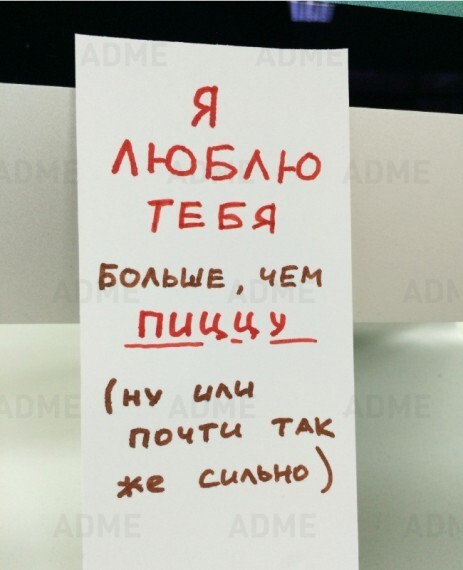 Я
ЛЮБЛЮ
ТЕБЯ
БОЛЬШЕ, ЧЕМ
ПИЦЦУ
(НУ ИЛИ
ПОЧТИ ТАК
ЖЕ СИЛЬНО)
ADME ADME
ADME ADME ADME
ADME ADME
ADME ADME ADME
ADME ADME